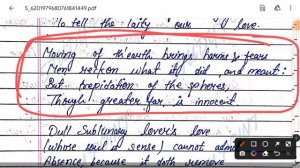 5_6201979680761841449.pdf
To tell the laity our love.
Moving of th'earth brings harms & fears
Men reckon what it did, and meant:
But trepidation of the spheres,
Though greater far, is innocent
Dull Sublunary lover's love
(whose soul is sense) cannot
Absence, because it doth remove